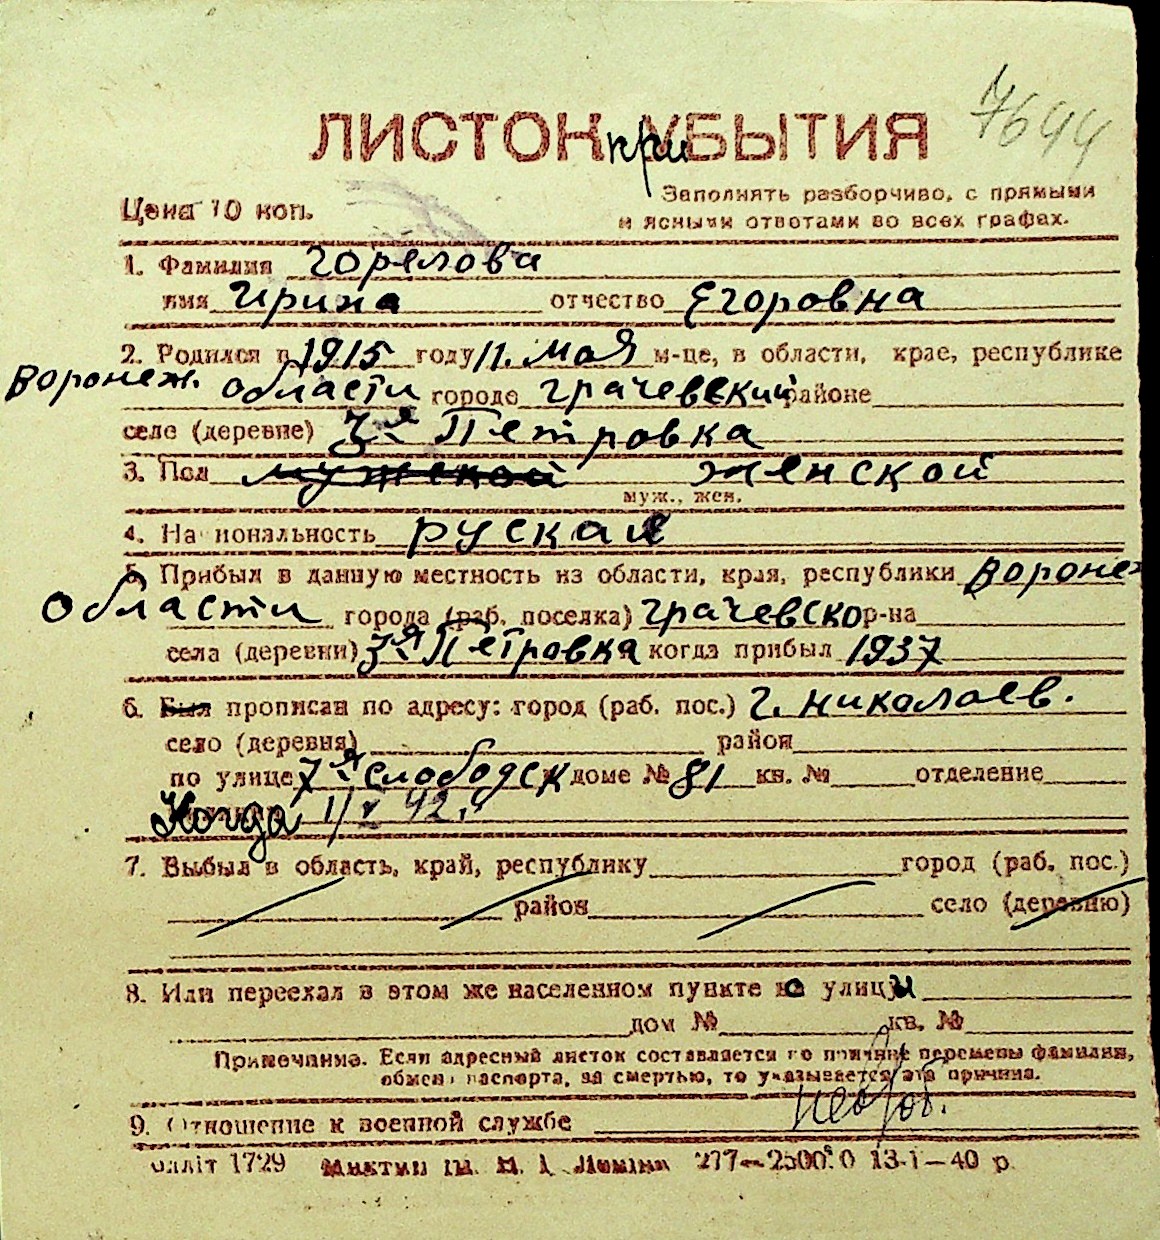 7644
ЛИСТОК приУБЫТИЯ
Цена 10 коп.
Заполнять разборчиво, с прямыми
и ясными ответами во всех графах.
1. Фамилия Горелова
имя Ирина отчество Егоровна
2. Родился в 1915 году 11. мая м-це, в области, крае, республике
Воронеж. области городе Грачевский районе
селе (деревне) 3я Петровка
3. Пол мужской женской
муж., жен.
4. Национальность руская
5. Прибыл в данную местность из области, края, республики Воронеж
области города (раб. поселка) Грачевско р-на
села (деревни) 3я Петровка когда прибыл 1937
6. Был прописан по адресу: город (раб. пос.) г. Николаев.
село (деревня) район
по улице 7я слободск доме № 81 кв. № отделение
Когда 1/V 42 г.
7. Выбыл в область, край, республику город (раб. пос.)
район село (деревню)
8. Или переехал в этом же населенном пункте на улицу
дом № кв. №
Примечание. Если адресный листок составляется по причине перемены фамилии,
обмена паспорта, за смертью, то указывается эта причина.
9. Отношение к военной службе
1729 277—2500.0 13-I—40 р.